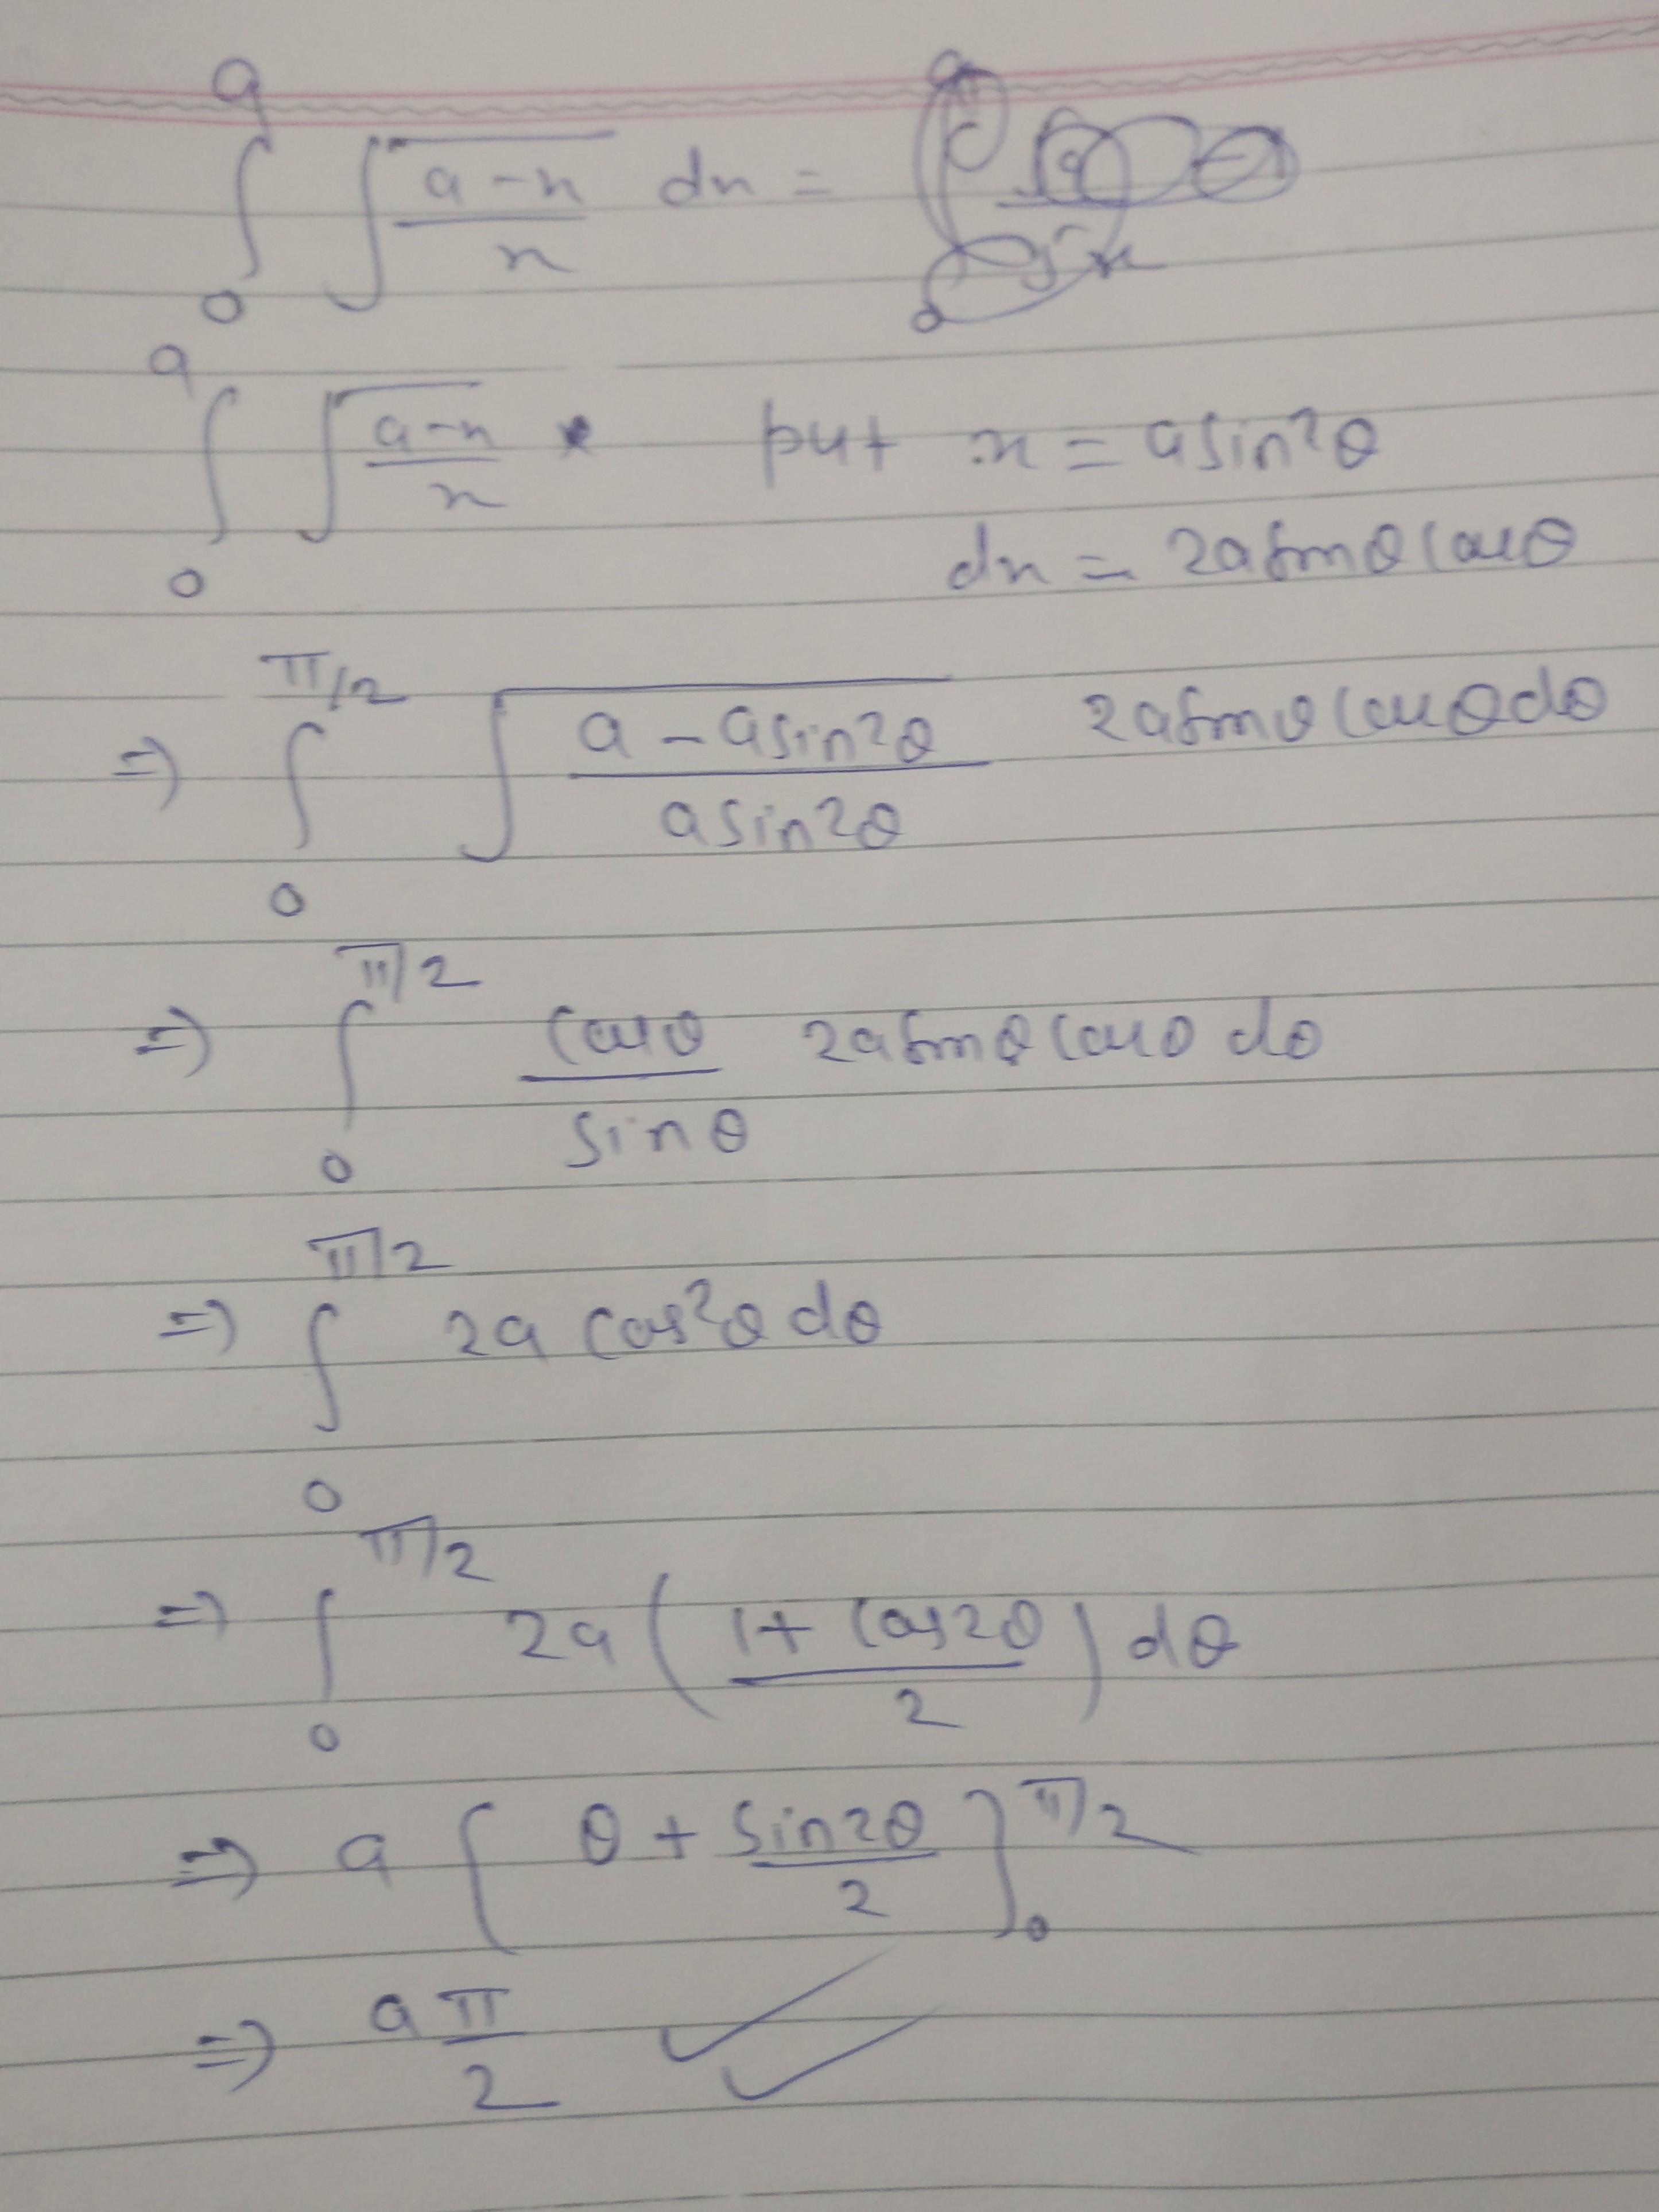 ∫₀ᵃ √((a-x)/x) dx =
∫₀ᵃ √((a-x)/x) put x = a sin²θ
dx = 2a sinθ cosθ
⇒ ∫₀^(π/2) √((a - a sin²θ)/(a sin²θ)) 2a sinθ cosθ dθ
⇒ ∫₀^(π/2) (cosθ/sinθ) 2a sinθ cosθ dθ
⇒ ∫₀^(π/2) 2a cos²θ dθ
⇒ ∫₀^(π/2) 2a ((1 + cos2θ)/2) dθ
⇒ a [θ + sin2θ/2]₀^(π/2)
⇒ aπ/2 ✓✓